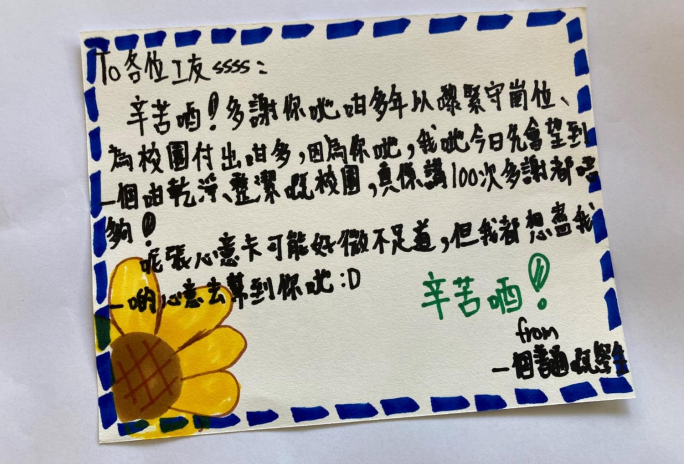 To各位工友ssss：
辛苦哂！多謝你哋咁多年以嚟緊守崗位、
為校園付出咁多，因為你哋，我哋今日先會望到
一個咁乾淨、整潔嘅校園，真係講100次多謝都唔
夠！
呢張心意卡可能好微不足道，但我都想盡我
一啲心意去幫到你哋:D
辛苦哂！
from
一個嘅學生